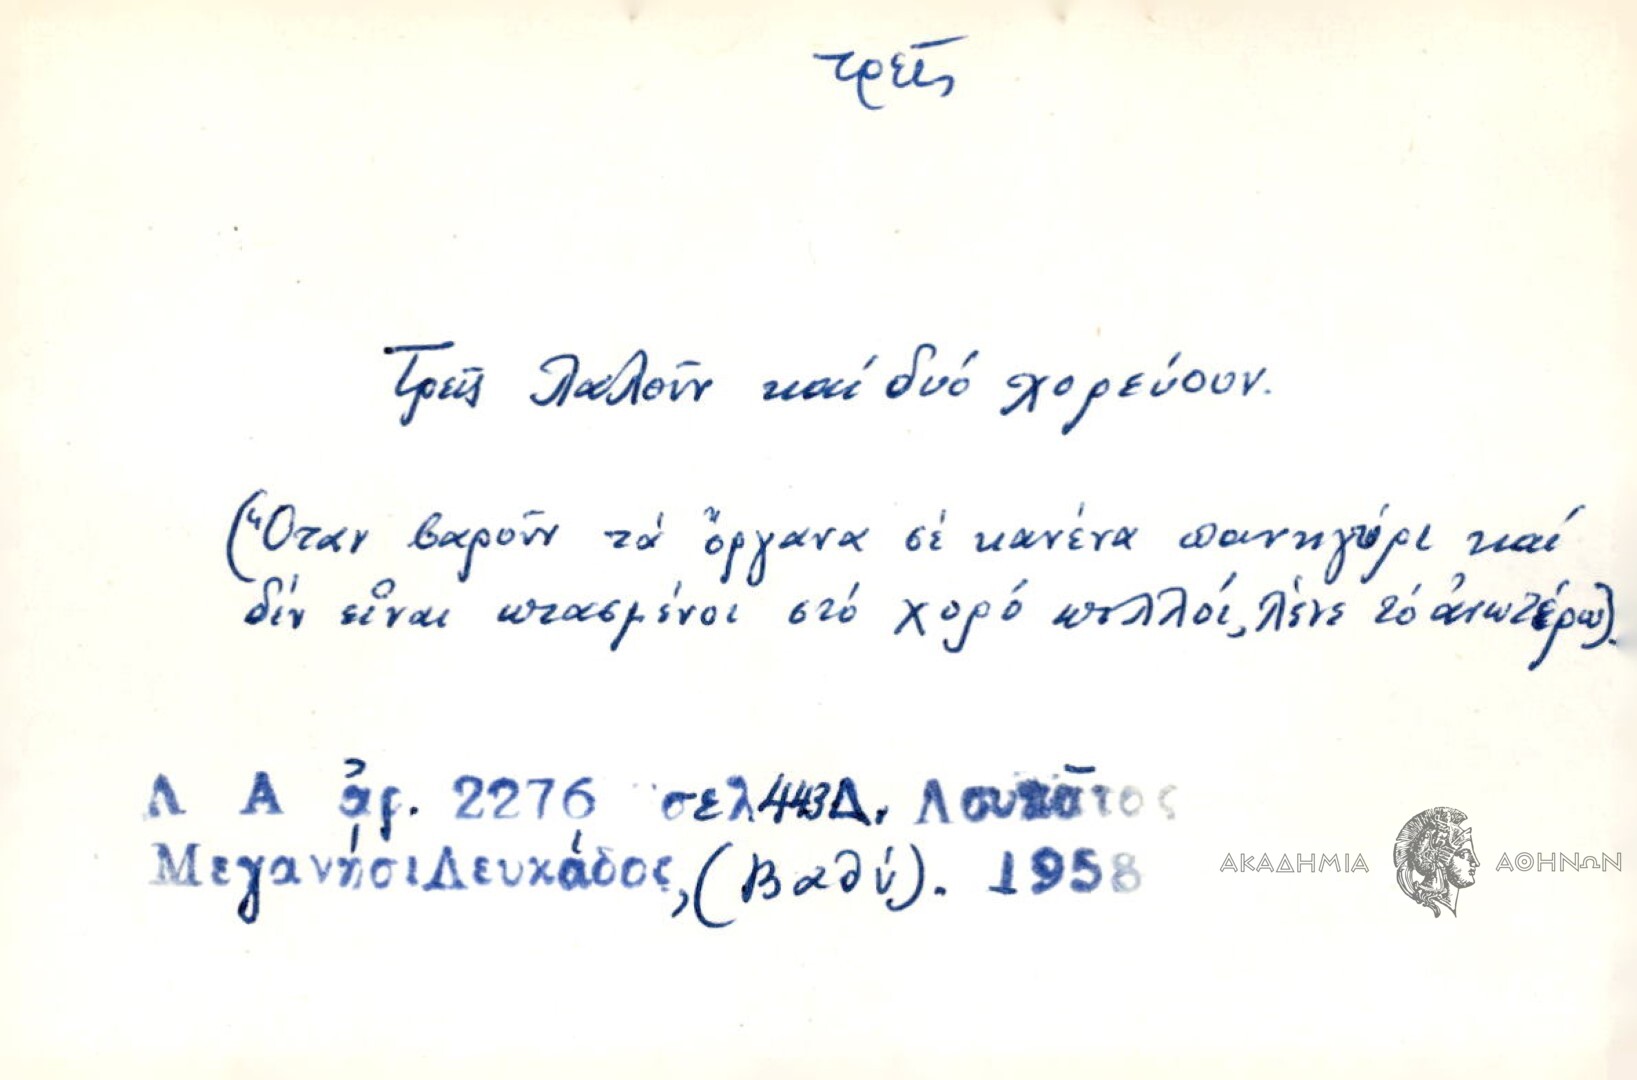 τρεῖς
Τρεῖς λαλοῦν καί δυό χορεύουν.
(Ὅταν βαροῦν τά ὄργανα σέ κανένα πανηγύρι καί
δέν εἶναι πιασμένοι στό χορό πολλοί, λένε τό ἀνωτέρω).
Λ Α ἀρ. 2276 σελ 443 Δ. Λουκᾶτος
Μεγανήσι Λευκάδος, (Βαθύ). 1958
ΑΚΑΔΗΜΙΑ ΑΘΗΝΩΝ